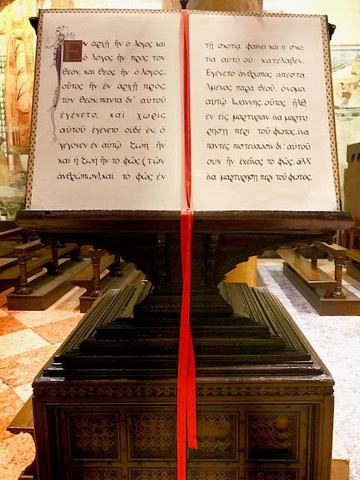 Ἐν ἀρχῇ ἦν ὁ λόγος καὶ
ὁ λόγος ἦν πρὸς τὸν
θεόν, καὶ θεὸς ἦν ὁ λόγος.
οὗτος ἦν ἐν ἀρχῇ πρὸς
τὸν θεόν. πάντα δι᾽ αὐτοῦ
ἐγένετο, καὶ χωρὶς
αὐτοῦ ἐγένετο οὐδὲ ἕν. ὃ
γέγονεν ἐν αὐτῷ ζωὴ ἦν
καὶ ἡ ζωὴ ἦν τὸ φῶς (τῶν
ἀνθρώπων), καὶ τὸ φῶς ἐν
τῇ σκοτίᾳ φαίνει καὶ ἡ σκο
τία αὐτὸ οὐ κατέλαβεν.
Ἐγένετο ἄνθρωπος ἀπεστα
λμένος παρὰ θεοῦ, ὄνομα
αὐτῷ Ἰωάννης. οὗτος ἦλθ
εν εἰς μαρτυρίαν ἵνα μαρτυ
ρήσῃ περὶ τοῦ φωτός, ἵνα
πάντες πιστεύσωσιν δι᾽ αὐτοῦ.
οὐκ ἦν ἐκεῖνος τὸ φῶς, ἀλλ᾽
ἵνα μαρτυρήσῃ περὶ τοῦ φωτός.